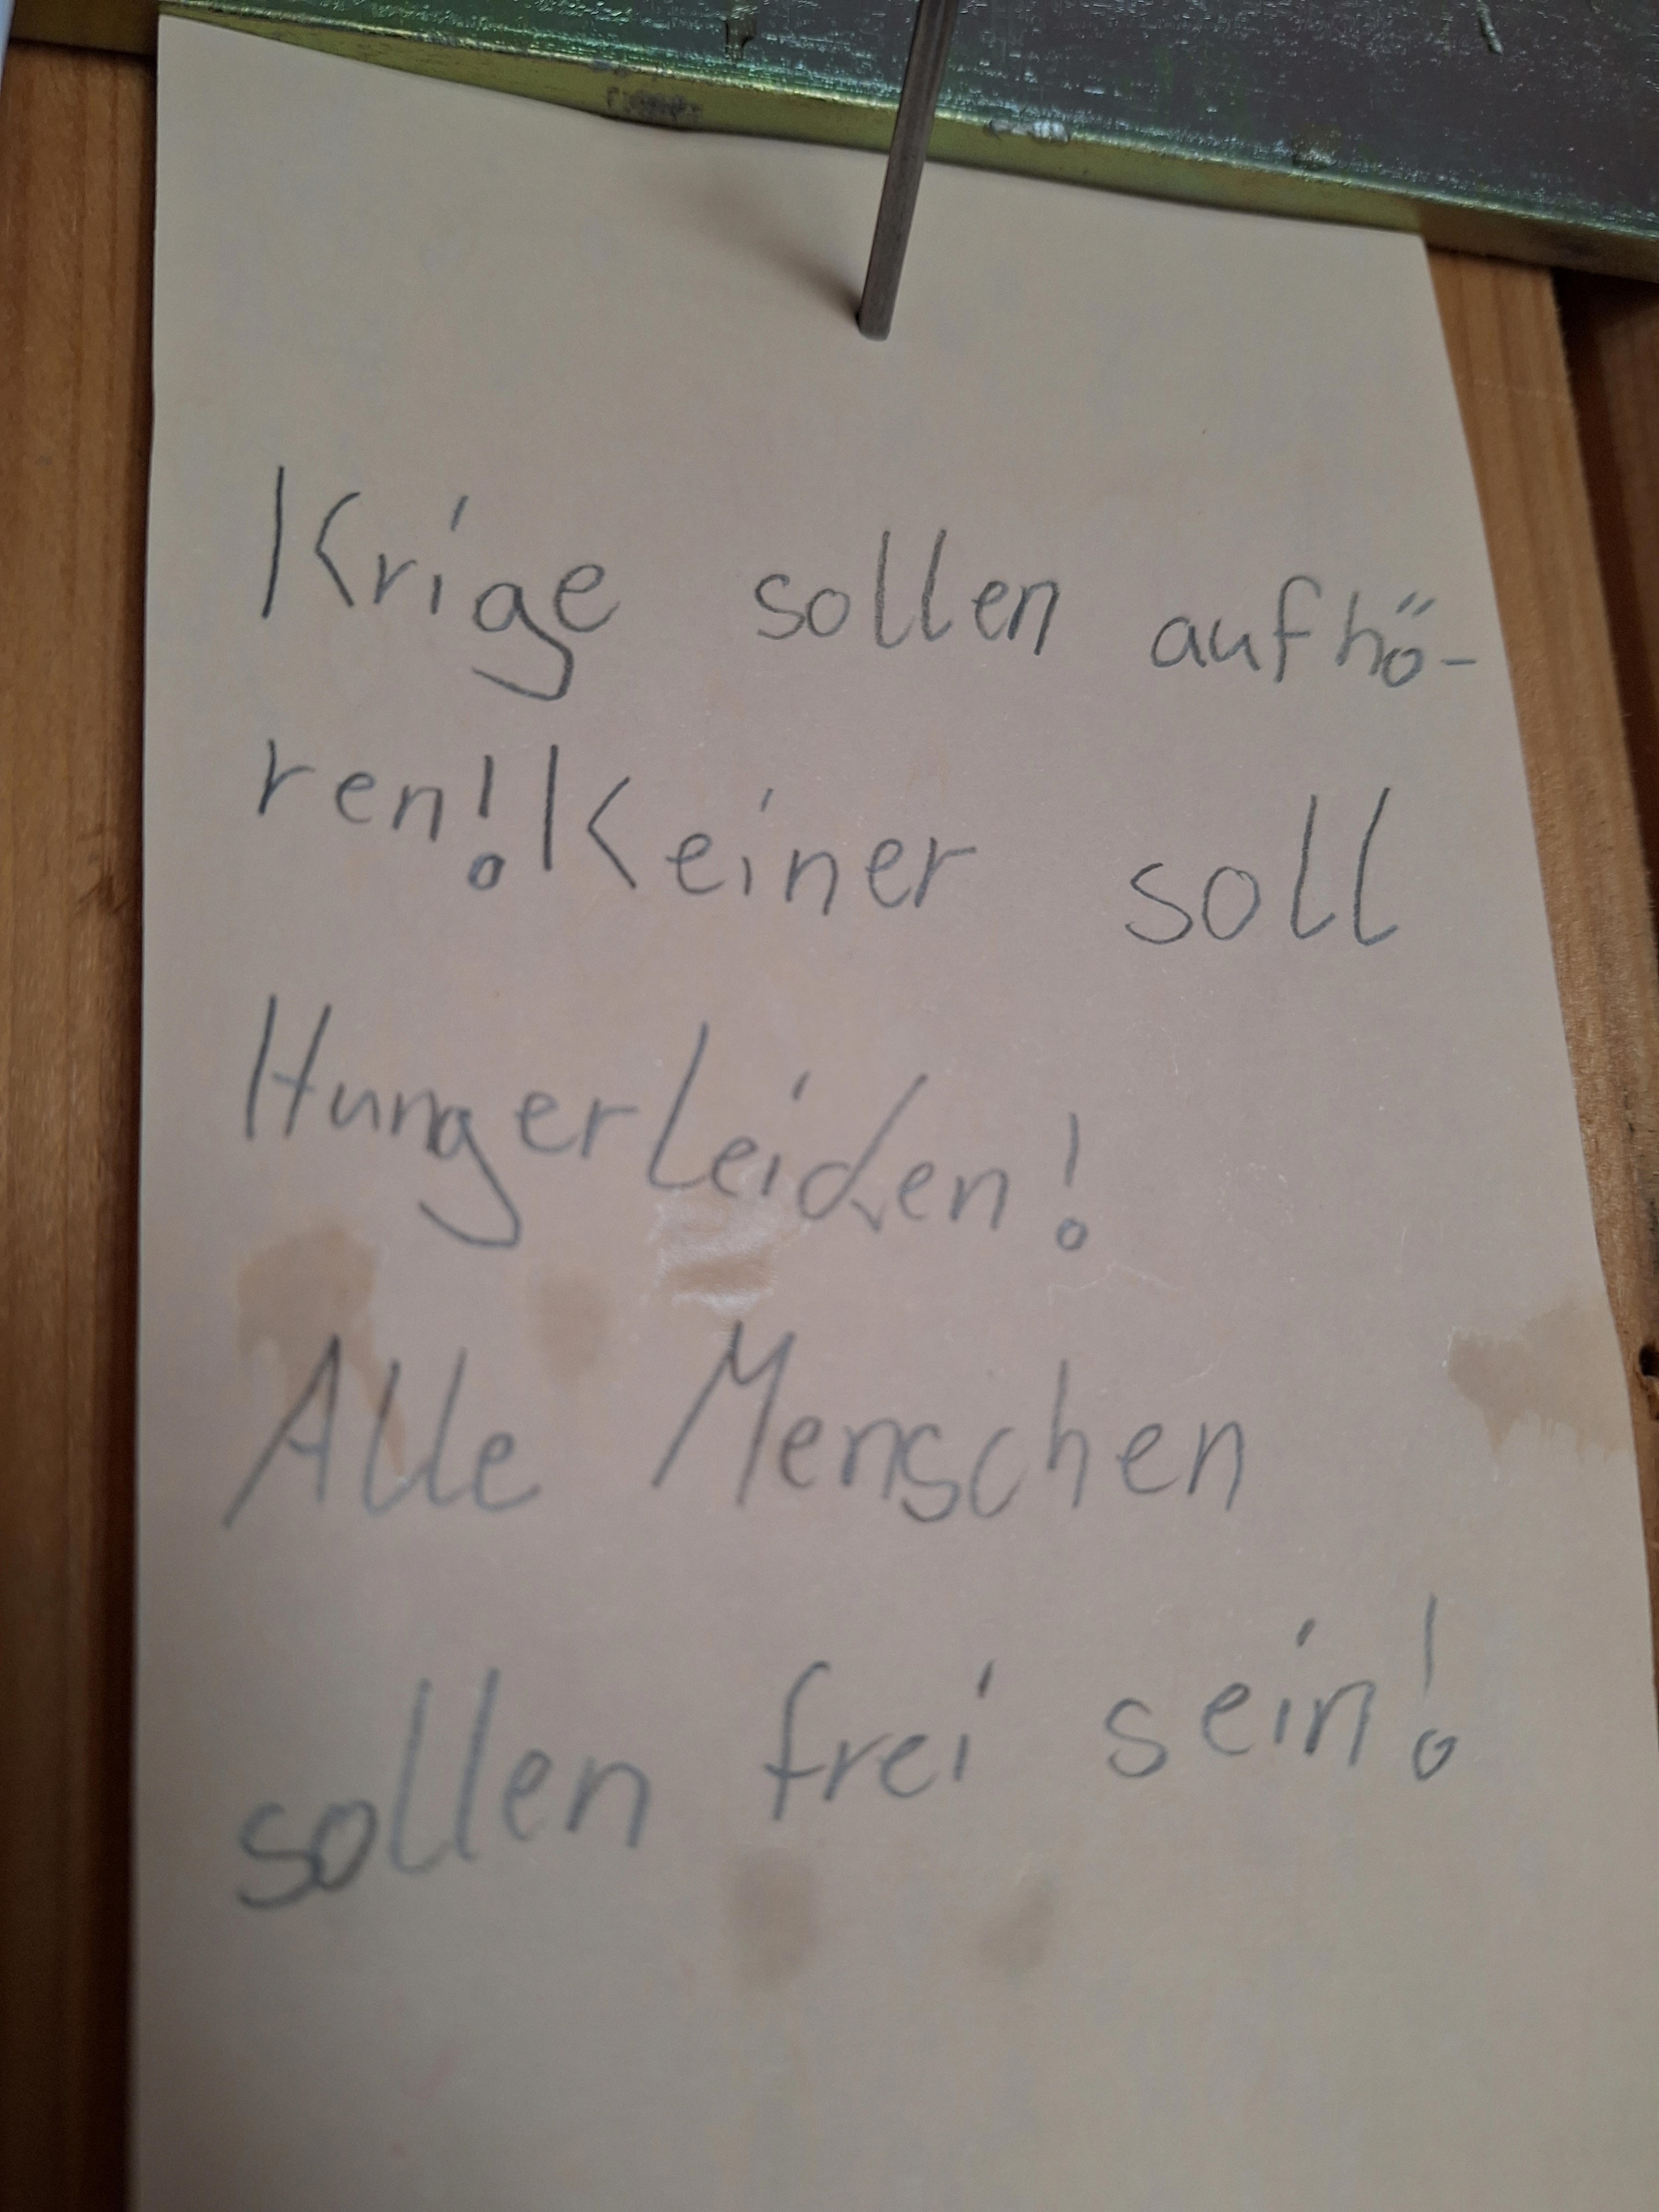 Krige sollen aufhö-
ren! Keiner soll
Hungerleiden!
Alle Menschen
sollen frei sein!